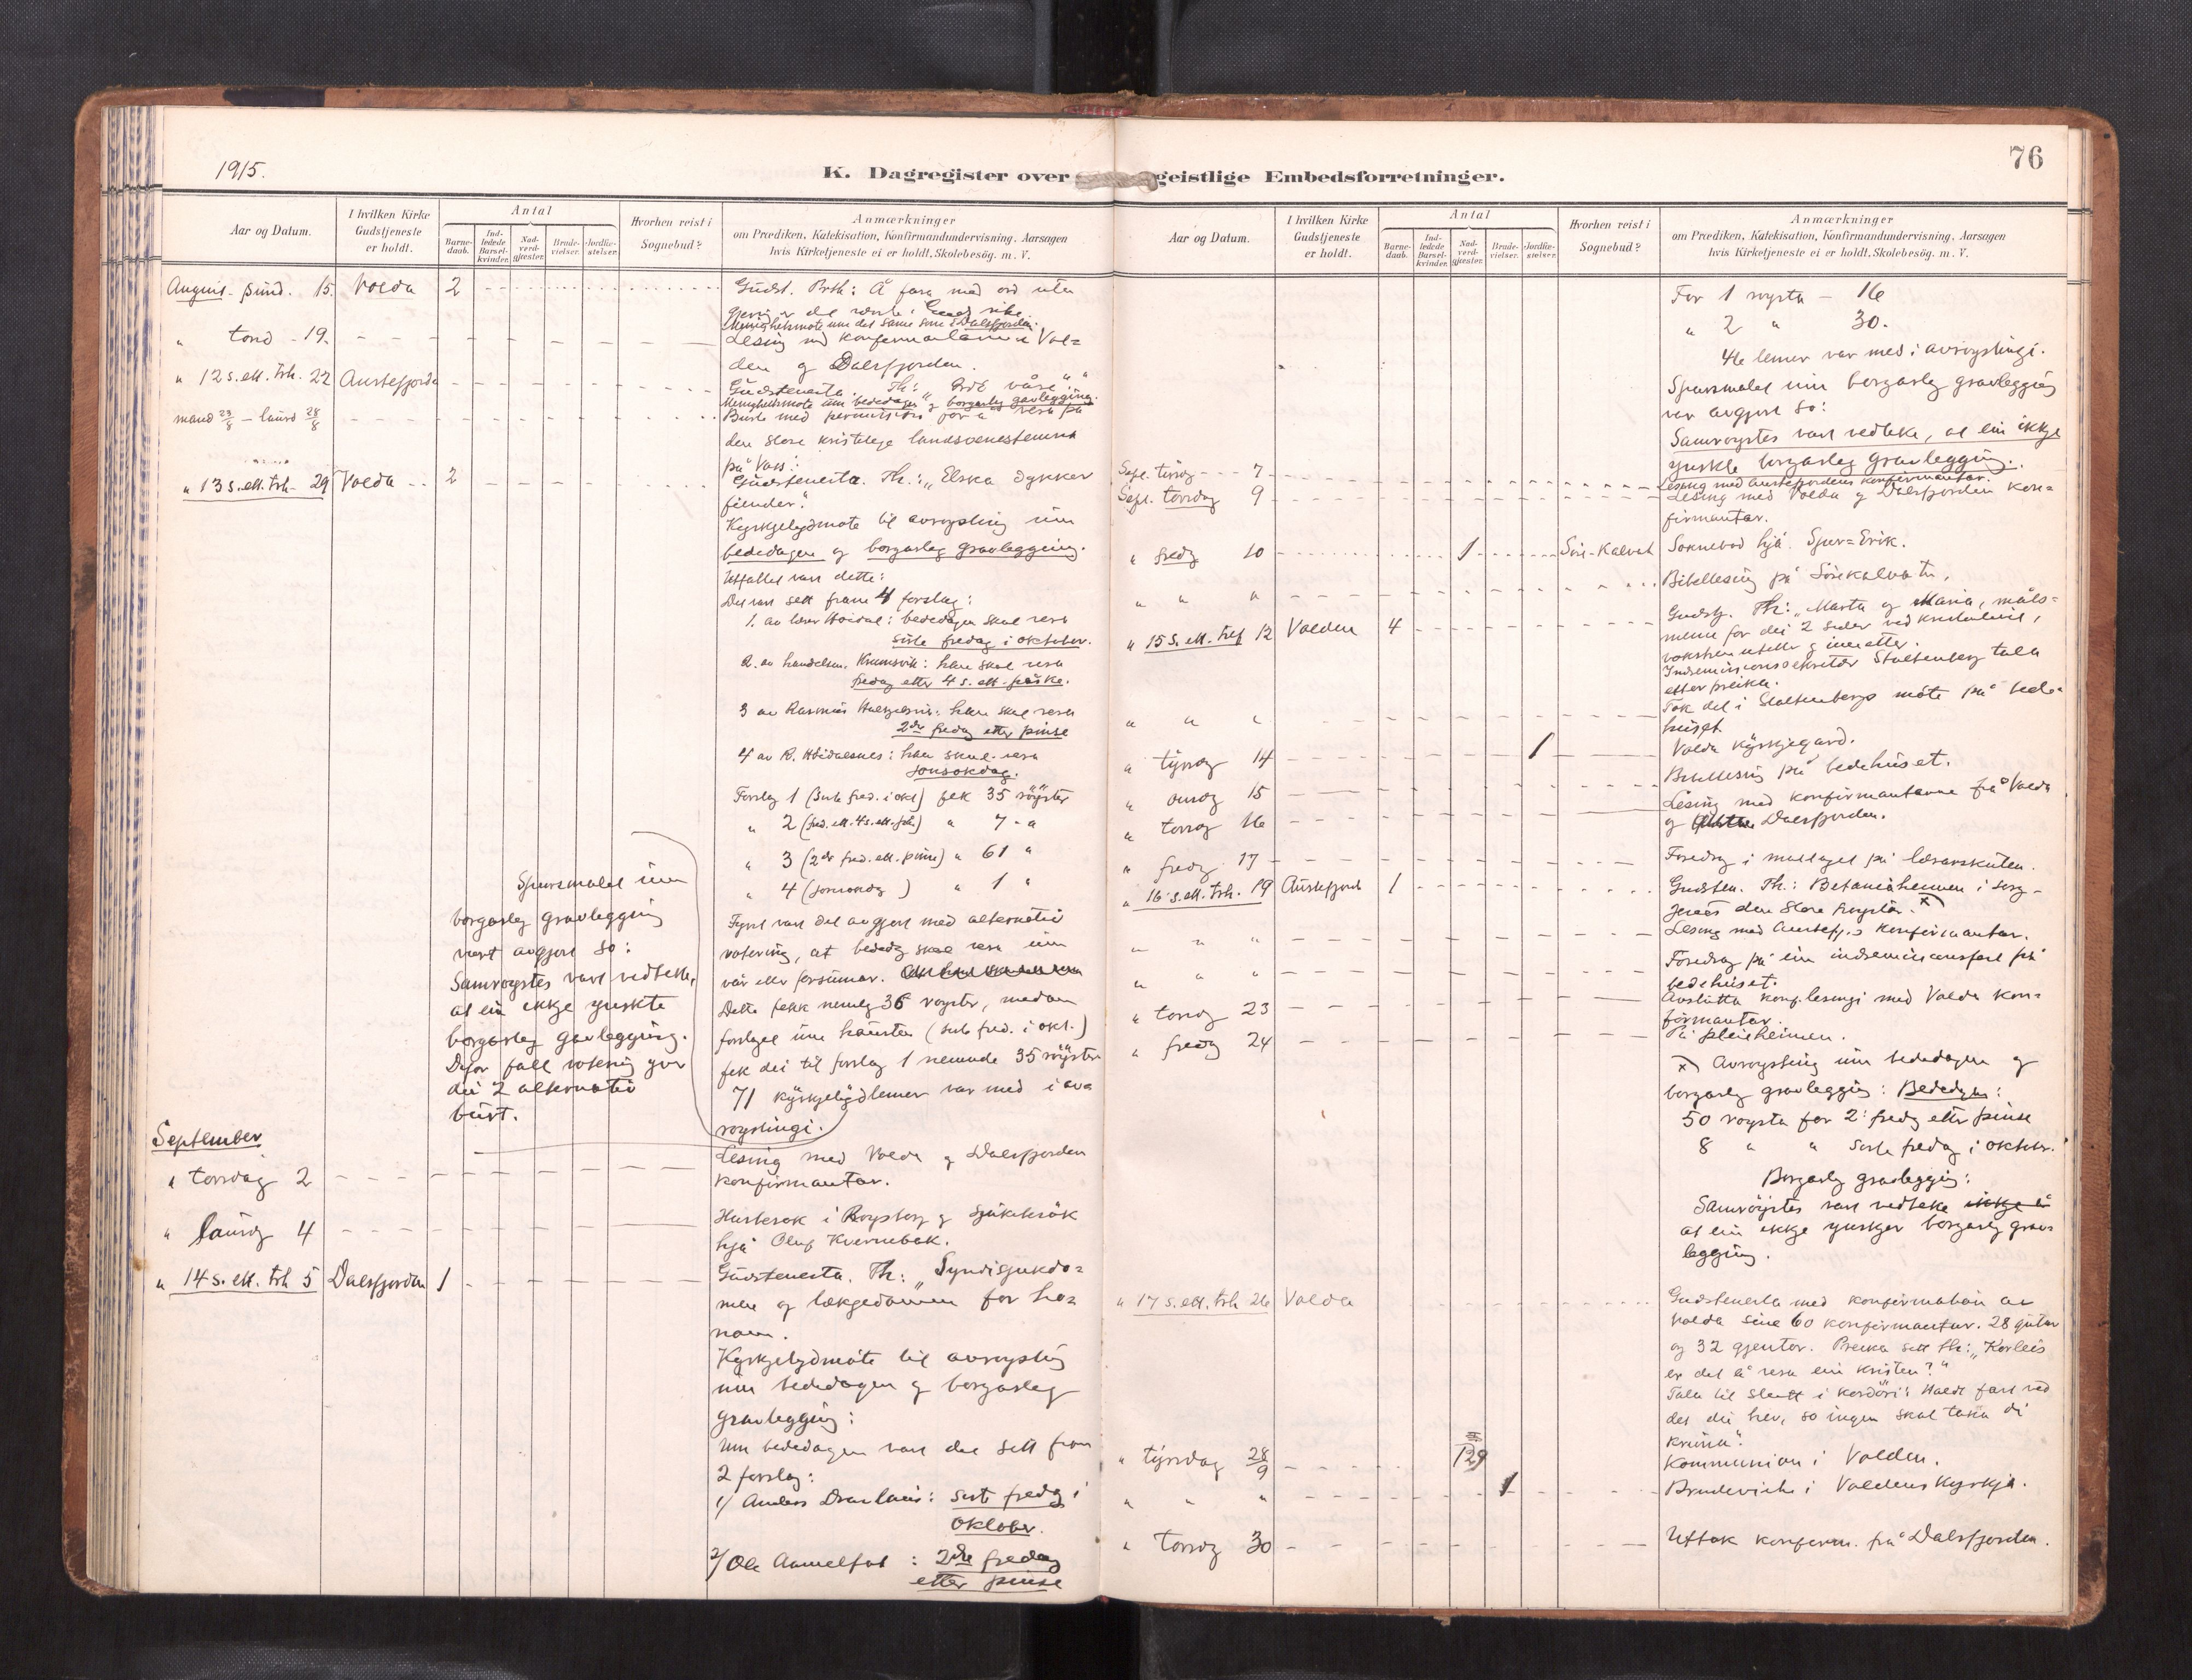 1915.
K. Dagregister over geistlige Embedsforretninger.
76
Aar og Datum.
I hvilken Kirke Gudstjeneste er holdt.
Antal
Barne-daab.
Ind-ledede Barsel-kvinder.
Nad-verd-gjæster.
Brude-vielser.
Jordfæ-stelser.
Hvorhen reist i Sognebud?
Anmærkninger
om Prædiken, Katekisation, Konfirmandundervisning, Aarsagen
hvis Kirketjeneste ei er holdt, Skolebesög. m. V.
August. sund. 15. Volda 2 Gudst. Å fara med ord uten
gjerning er det
Menighetsmote um det same som i Dalsfjorden.
" torsd. 19. Lesing med konfirmantane i Vol=
den og Dalsfjorden.
" 12 s. ett. trh. 22 Austefjorden Gudstenesta. Th: "
Menighetsmote um bededagen og borgarleg gravlegging.
mand 23/8 – laurd 28/8 Burte med permission for å vera på
den store kristelege landsstemna
på Voss.
" 13 s. ett. trh. 29 Volda 2 Gudstenesta. Th.: "Elska dykker
fiender".
Kyrkjelydmøte til avrøysting um
bededagen og borgarleg gravlegging.
Utfallet vart dette:
Det vart sett fram 4 forslag:
1. av lærar Hovdal: bededagen skal vera
siste fredag i oktober.
2. av handelsm. Krumsvik: han skal vera
fredag etter 4 s. ett. påske.
3 av Rasmus: han skal vera
2dre fredag etter pinse
4 av R. Høidalsnes: han skal vera
Jonsokdag.
Forslag 1 (siste fred. i okt) fek 35 røyster
" 2 (fred. ett. 4 s. ett. psk.) " 7 "
" 3 (2dr fred. ett. pinse) " 61 "
" 4 (Jonsokdg) " 1 "
Fyrst vart det avgjort med alternativ
votering, at bededg skal vera um
vår eller forsumar.
Dette fekk nemleg 36 røyster, medan
forslaget um hausten (siste fred. i okt.)
fek dei til forslag 1 nemnde 35 røyster
71 kyrkjelydlemer var med i av=
røystingi.
Spursmålet um
borgarleg gravlegging
vart avgjort so:
Samrøystes vart vedteke,
at ein ikkje ynskte
borgarleg gravlegging.
Difor fall votering yver
dei 2 alternativ
burt.
September
" torsdag 2 Lesing med Volda og Dalsfjorden
konfirmantar.
" laurdg 4 Husbesøk i Røysberg og sjukebesøk
hjå Oluf Kvernebak.
" 14 s. ett. trh 5 Dalsfjorden 1 Gudstenesta. Th: "Syndisjukdo=
men og lækjedomen for ho=
nom.
Kyrkjelydmøte til avrøysting
um bededagen og borgarleg
gravlegging:
Um bededagen vart det sett fram
2 forslag:
1/ Anders: siste fredag i
oktober.
2/ Ole Aamelfot: 2dre fredag
etter pinse
For 1 røysta – 16
" 2 " 30.
46 lemer var med i avrøystingi.
Spursmålet um borgarleg gravlegging
var avgjort so:
Samrøystes vart vedteke, at ein ikkje
ynskte borgarleg gravlegging.
Sept. tirsdg 7 Lesing med Austefjordens konfirmantar.
Sept. torsdag 9 Lesing med Volda og Dalsfjorden kon=
firmantar.
" fredg 10 1 Søre-Kalvat Soknebod hjå Sjur=Erik.
" " " Bibellesing på Sørekalvatn.
" 15 s. ett. tref 12 Volden 4 Gudstj. Th: "Marta og Maria, måls=
menn for dei 2 sider ved kristenlivet,
voksteren utetter og innetter.
Indremissionssekretær Stoltenberg tala
etter preika.
" " " Tok del i Stoltenbergs møte på bede=
huset.
" tysdg 14 1 Volda kyrkjegard.
" onsdg 15 Bibellesing på bedehuset.
" torsdg 16 Lesing med konfirmantarne frå Volda
og Dalsfjorden.
" fredg 17 Foredrag i mållaget på lærarskulen.
" 16 s. ett. trh. 19 Austefjord 1 Gudsten. Th.: Betaniaheimen i sorg –
Jesus den store trøystar. x)
" " " Lesing med Austefj.s konfirmantar.
" " " Foredrag på ein indremisjonsfest på
bedehuset.
" torsdg 23 Avslutta konf.lesingi med Volda kon=
firmantar.
" fredg 24 På pleieheimen.
x) Avrøysting um bededagen og
borgarleg gravlegging: Bededgen:
50 røysta for 2: fredg etter pinse
8 " " siste fredag i oktober.
Borgarleg gravlegging:
Samrøystes vart vedteke
at ein ikkje ynskjer borgarleg grav=
legging.
" 17 s. ett. trh 26 Volda Gudstenesta med konfirmation av
Volda sine 60 konfirmantar. 28 gutar
og 32 gjentor. Preika sett th: "Korleis
er det å vera ein kristen?"
Tala til slutt i kordöri: Hald fast ved
det du hev, so ingen skal taka di
kruna".
" tysdag 28/9 129 Kommunion i Volden.
" " " 1 Brudevigsle i Voldens kyrkja.
" torsdg 30 Uttak konfirm. frå Dalsfjorden.